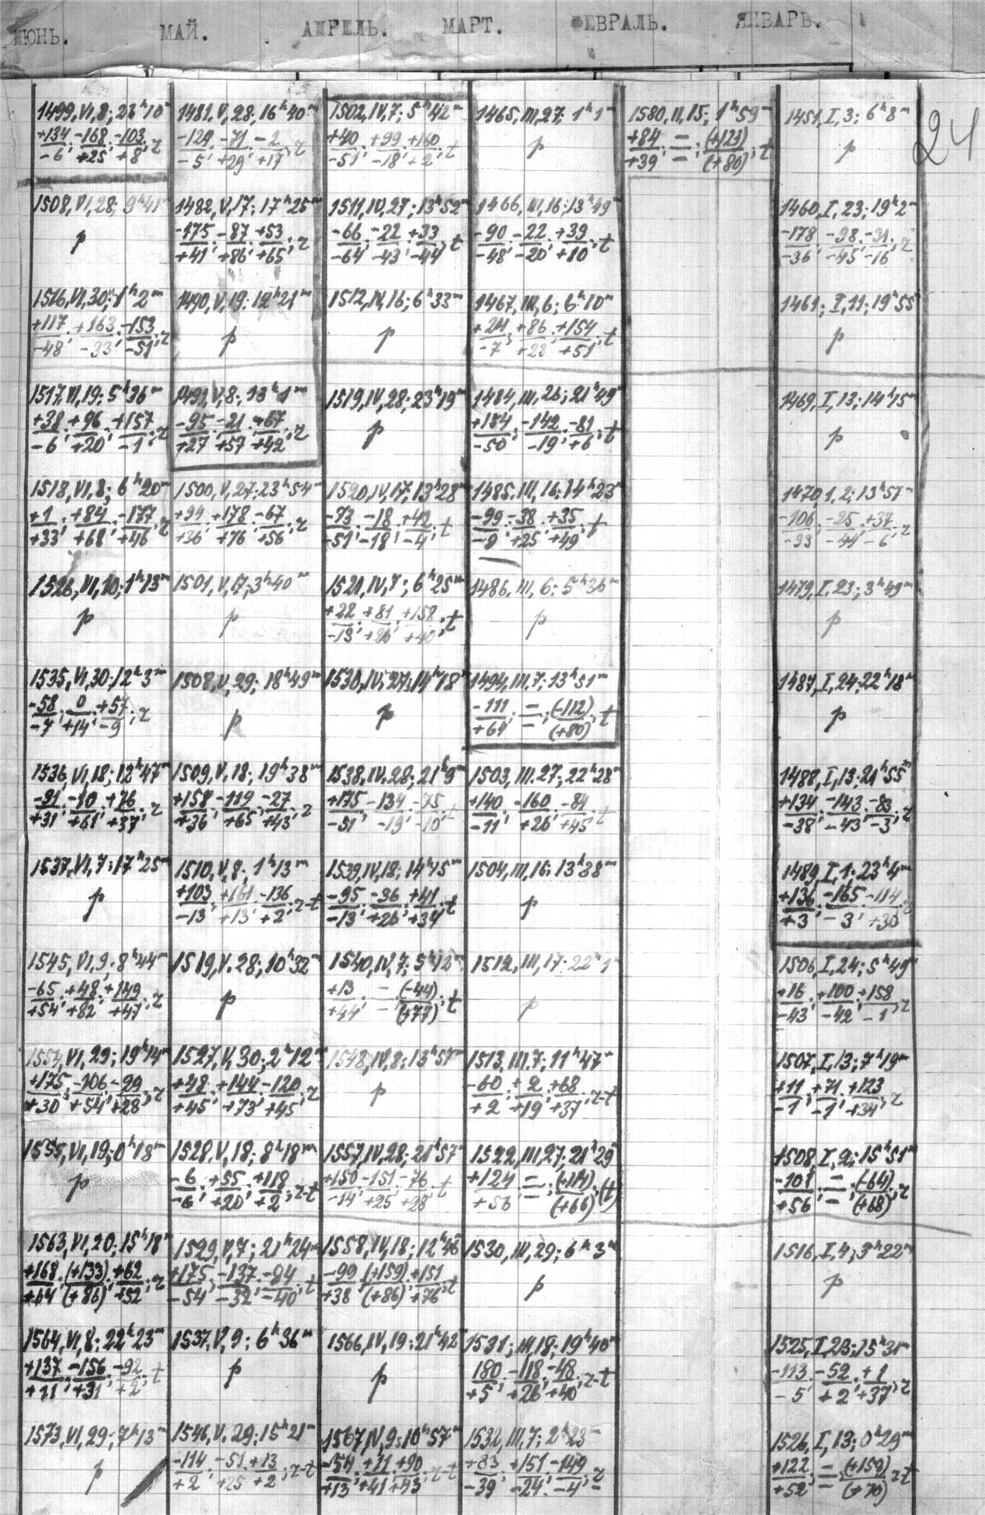 ИЮНЬ. МАЙ. АПРЕЛЬ. МАРТ. ФЕВРАЛЬ. ЯНВАРЬ.
24
1499, VI, 8; 23ʰ10ᵐ
+134/-6; -168/+25; -103/+8; r
1508, VI, 28; 9ʰ41ᵐ
p
1516, VI, 30; 1ʰ2ᵐ
+117/-48; +163/-33; -153/-51; r
1517, VI, 19; 5ʰ36ᵐ
+38/-6; +96/+20; +157/-1; r
1518, VI, 8; 6ʰ20ᵐ
+1/+33; +84/+68; -177/+46; r
1526, VI, 10; 1ʰ13ᵐ
p
1535, VI, 30; 12ʰ3ᵐ
-58/-7; 0/+14; +57/-9; r
1536, VI, 18; 12ʰ47ᵐ
-91/+31; -10/+61; +76/+37; r
1537, VI, 7; 17ʰ25ᵐ
p
1545, VI, 9; 8ʰ44ᵐ
-65/+54; +48/+82; +149/+47; r
1554, VI, 29; 19ʰ14ᵐ
+175/+30; -106/+54; -29/+28; r
1555, VI, 19; 0ʰ18ᵐ
p
1563, VI, 20; 15ʰ18ᵐ
+168/+64; (+133)/(+86); +62/+52; r
1564, VI, 8; 22ʰ23ᵐ
+137/+11; -156/+31; -92/+2; t
1573, VI, 29; 7ʰ13ᵐ
p
1481, V, 28; 16ʰ40ᵐ
-129/-5; -71/+29; -2/+17; r
1482, V, 17; 17ʰ25ᵐ
-175/+41; -87/+86; +53/+65; r
1490, V, 19; 12ʰ21ᵐ
p
1491, V, 8; 13ʰ1ᵐ
-95/+27; -21/+57; +67/+42; r
1500, V, 27; 23ʰ54ᵐ
+94/+36; +178/+76; -67/+56; r
1501, V, 17; 3ʰ40ᵐ
p
1508, V, 29; 18ʰ49ᵐ
p
1509, V, 18; 19ʰ38ᵐ
+158/+36; -119/+65; -27/+43; r
1510, V, 8; 1ʰ13ᵐ
+103/-13; +161/+13; -136/+2; r-t
1519, V, 28; 10ʰ32ᵐ
p
1527, V, 30; 2ʰ12ᵐ
+48/+45; +144/+73; -120/+45; r
1528, V, 18; 8ʰ18ᵐ
-6/-6; +55/+20; +118/+2; r-t
1529, V, 7; 21ʰ24ᵐ
+175/-54; -137/-32; -84/-40; t
1537, V, 9; 6ʰ36ᵐ
p
1546, V, 29; 15ʰ21ᵐ
-114/+2; -51/+25; +13/+2; r-t
1502, IV, 7; 5ʰ42ᵐ
+40/-51; +99/-18; +160/+2; t
1511, IV, 27; 13ʰ52ᵐ
-66/-64; -22/-43; +33/-44; t
1512, IV, 16; 6ʰ33ᵐ
p
1519, IV, 28; 23ʰ19ᵐ
p
1520, IV, 17; 13ʰ28ᵐ
-73/-51; -18/-18; +42/-4; t
1521, IV, 7; 6ʰ25ᵐ
+22/-13; +81/+26; +158/+40; t
1530, IV, 27; 14ʰ18ᵐ
p
1538, IV, 28; 21ʰ9ᵐ
+175/-51; -134/-19; -75/-10; t
1539, IV, 18; 14ʰ15ᵐ
-95/-13; -36/+26; +41/+34; t
1540, IV, 7; 5ʰ12ᵐ
+13/+44; =; (-44)/(+77); t
1548, IV, 8; 13ʰ57ᵐ
p
1557, IV, 28; 21ʰ57ᵐ
+150/-14; -151/+25; -76/+28; t
1558, IV, 18; 12ʰ46ᵐ
-99/+38; (+159)/(+86); +151/+76; t
1566, IV, 19; 21ʰ42ᵐ
p
1567, IV, 9; 10ʰ57ᵐ
-54/+13; +21/+41; +90/+43; r-t
1465, III, 27; 1ʰ1ᵐ
p
1466, III, 16; 13ʰ49ᵐ
-90/-48; -22/-20; +39/+10; t
1467, III, 6; 6ʰ10ᵐ
+21/-7; +86/+28; +154/+51; t
1484, III, 26; 21ʰ49ᵐ
+184/-50; -142/-19; -81/+6; t
1485, III, 16; 14ʰ23ᵐ
-99/-9; -38/+25; +35/+49; t
1486, III, 6; 5ʰ36ᵐ
p
1494, III, 7; 13ʰ51ᵐ
-111/+64; =; (-112)/(+80); t
1503, III, 27; 22ʰ28ᵐ
+140/-11; -160/+26; -84/+45; t
1504, III, 16; 13ʰ38ᵐ
p
1512, III, 17; 22ʰ1ᵐ
p
1513, III, 7; 11ʰ47ᵐ
-60/+2; +2/+19; +68/+37; r-t
1522, III, 27; 21ʰ29ᵐ
+124/+56; =; (-114)/(+66); (t)
1530, III, 29; 6ʰ3ᵐ
p
1531, III, 18; 19ʰ40ᵐ
180/+5; -118/+26; -48/+40; r-t
1532, III, 7; 2ʰ23ᵐ
+83/-39; +151/-24; -149/-4; r
1580, II, 15; 1ʰ59ᵐ
+84/+39; =; (+123)/(+80); t
1451, I, 3; 6ʰ8ᵐ
p
1460, I, 23; 19ʰ2ᵐ
-178/-36; -98/-45; -31/-16; r
1461, I, 11; 19ʰ55ᵐ
p
1469, I, 13; 14ʰ15ᵐ
p
1470, I, 2; 13ʰ57ᵐ
-106/-33; -25/-41; +37/-6; r
1479, I, 23; 3ʰ49ᵐ
p
1487, I, 24; 22ʰ18ᵐ
p
1488, I, 13; 21ʰ55ᵐ
+134/-38; -143/-43; -83/-3; r
1489, I, 1; 23ʰ4ᵐ
+136/+3; -165/-3; -114/+30; r
1506, I, 24; 5ʰ49ᵐ
+16/-43; +100/-42; +158/-1; r
1507, I, 13; 7ʰ19ᵐ
+11/-1; +71/-1; +123/+34; r
1508, I, 2; 15ʰ51ᵐ
-101/+56; =; (-64)/(+68); r
1516, I, 4; 3ʰ22ᵐ
p
1525, I, 23; 15ʰ31ᵐ
-113/-5; -52/+2; +1/+37; r
1526, I, 13; 0ʰ29ᵐ
+122/+52; =; (+159)/(+70); r-t